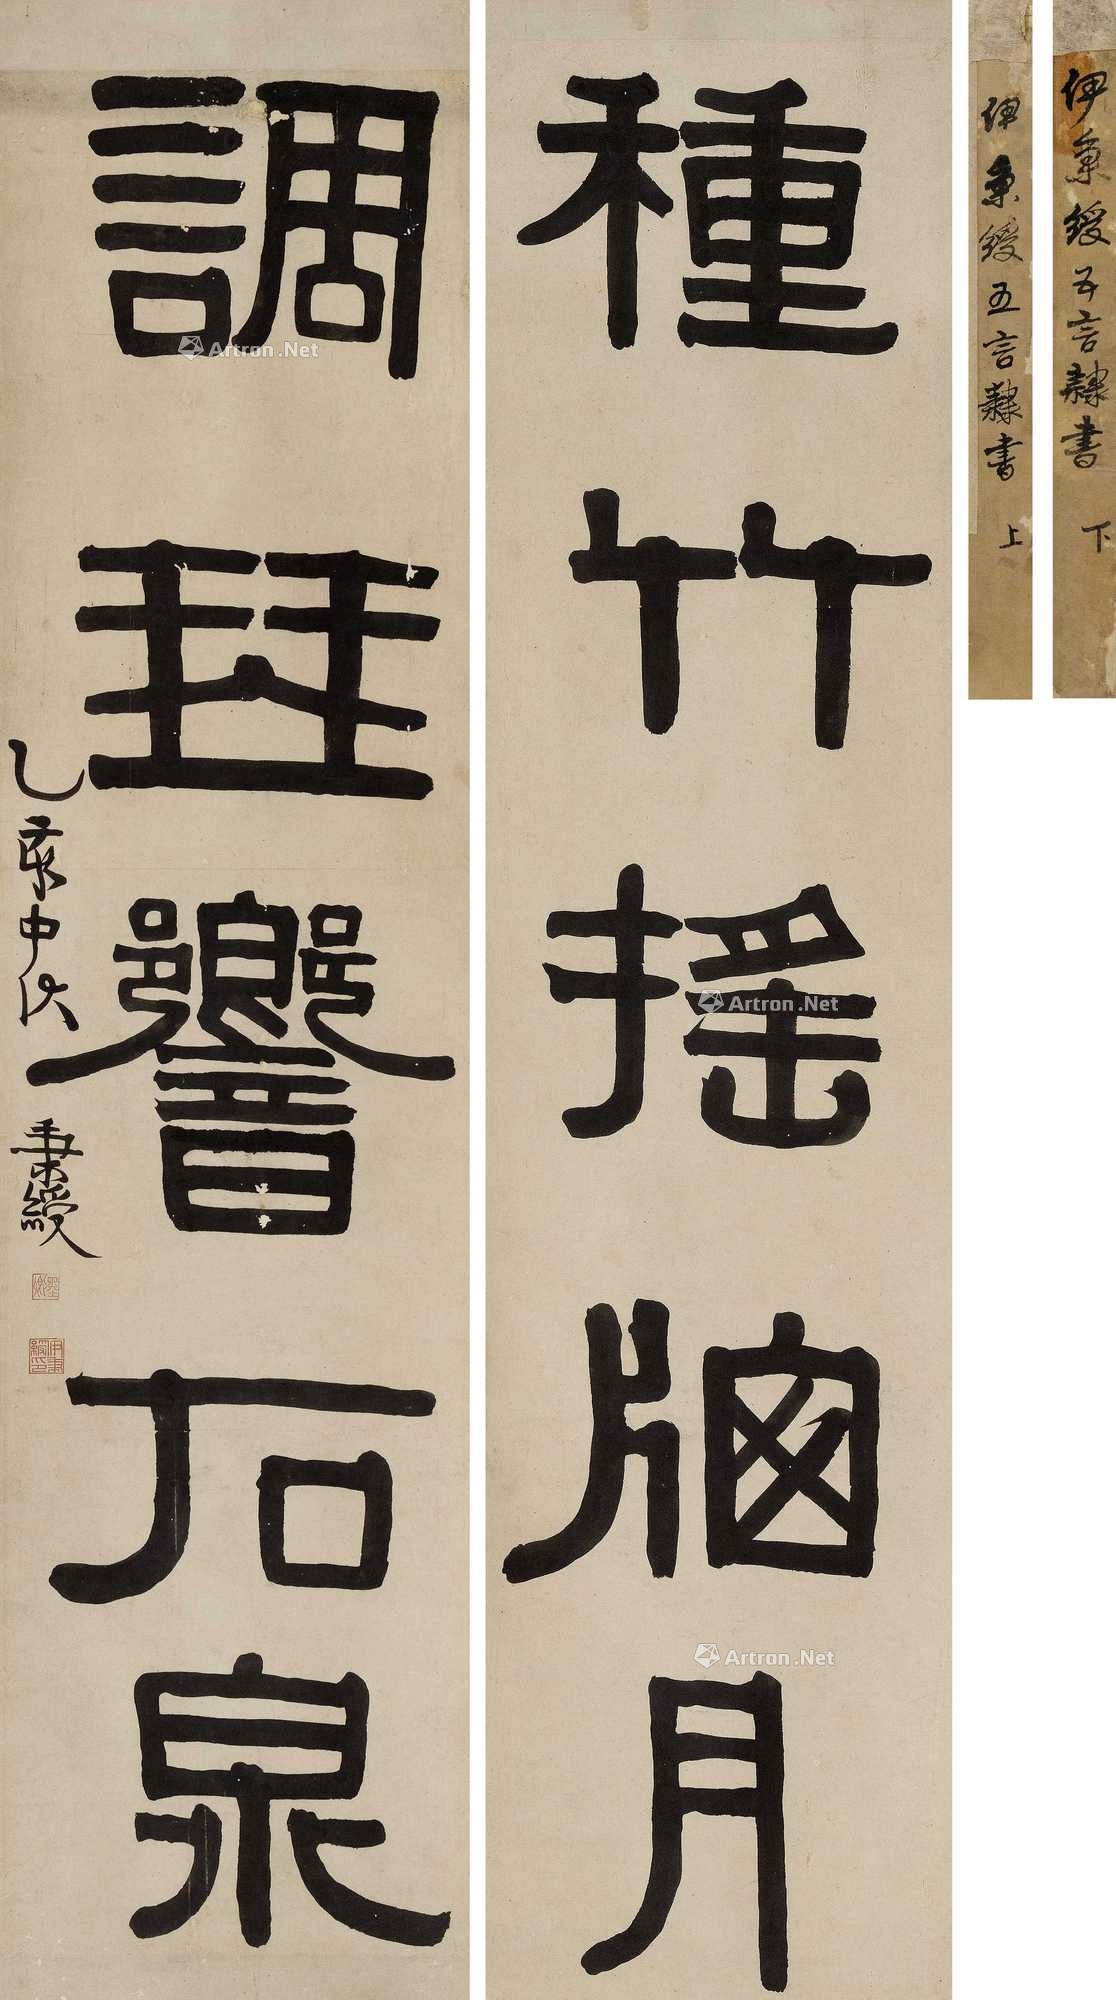 種竹搖牕月
調琴響石泉
乙亥中秋 秉綬
墨卿
伊秉綬印
伊秉綬五言隸書 上
伊秉綬五言隸書 下
Artron.Net
Artron.Net
Artron.Net